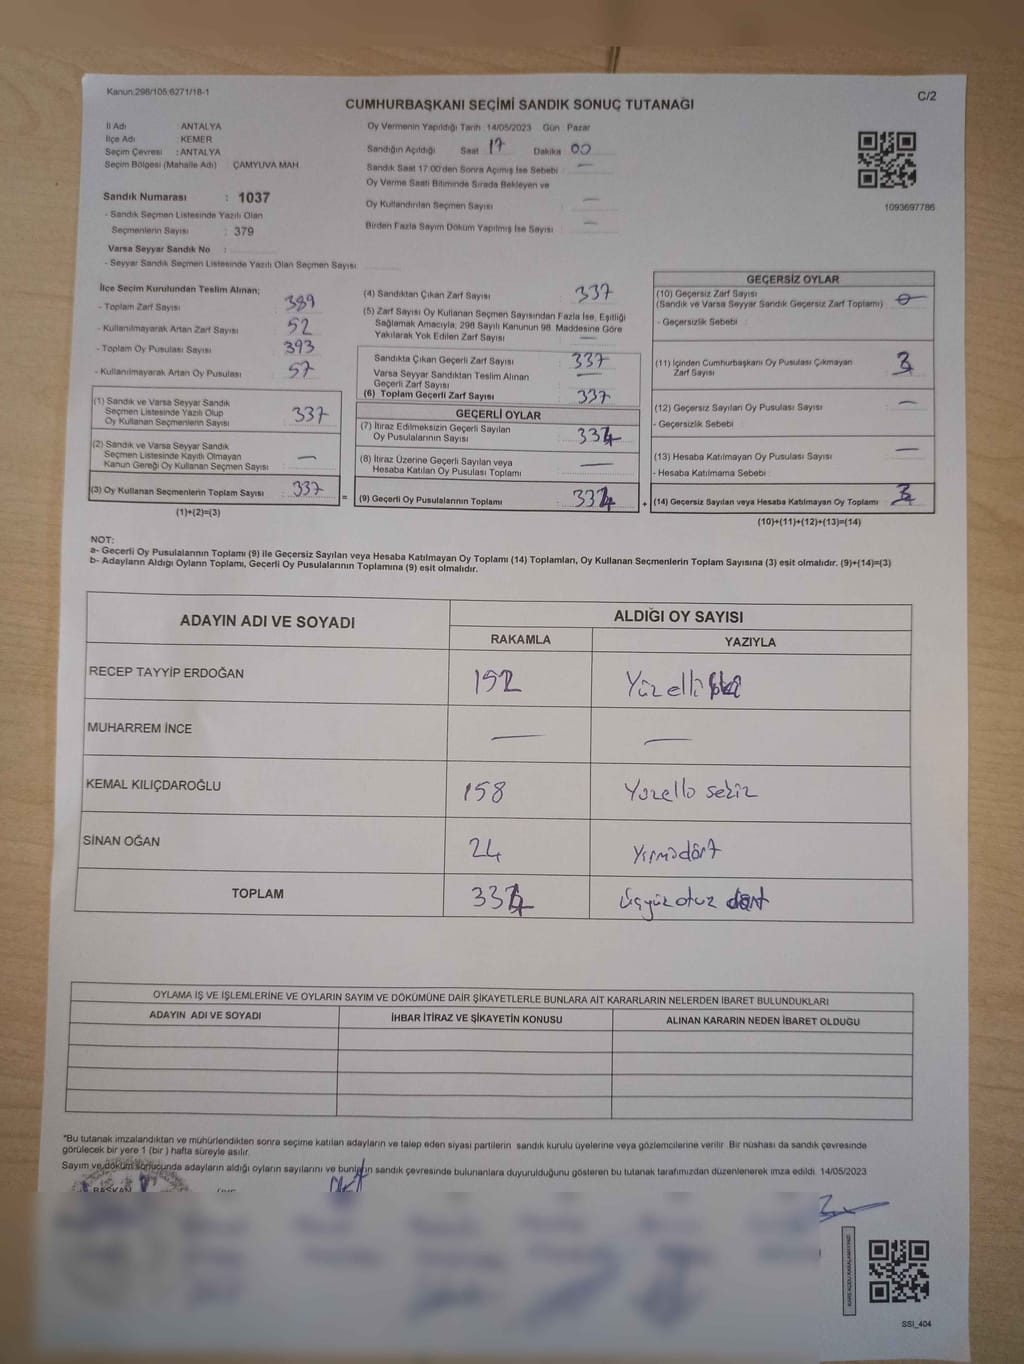 Kanun:298/105,6271/18-1
C/2
CUMHURBAŞKANI SEÇİMİ SANDIK SONUÇ TUTANAĞI
İl Adı : ANTALYA
İlçe Adı : KEMER
Seçim Çevresi : ANTALYA
Seçim Bölgesi (Mahalle Adı) : ÇAMYUVA MAH.
Sandık Numarası : 1037
- Sandık Seçmen Listesinde Yazılı Olan
Seçmenlerin Sayısı : 379
Varsa Seyyar Sandık No :
- Seyyar Sandık Seçmen Listesinde Yazılı Olan Seçmen Sayısı
Oy Vermenin Yapıldığı Tarih : 14/05/2023 Gün : Pazar
Sandığın Açıldığı Saat 17 Dakika 00
Sandık Saat 17:00'den Sonra Açılmış İse Sebebi : —
Oy Verme Saati Bitiminde Sırada Bekleyen ve
Oy Kullandırılan Seçmen Sayısı : —
Birden Fazla Sayım Döküm Yapılmış İse Sayısı : —
1093697786
İlçe Seçim Kurulundan Teslim Alınan;
- Toplam Zarf Sayısı : 389
- Kullanılmayarak Artan Zarf Sayısı : 52
- Toplam Oy Pusulası Sayısı : 393
- Kullanılmayarak Artan Oy Pusulası : 57
(1) Sandık ve Varsa Seyyar Sandık
Seçmen Listesinde Yazılı Olup
Oy Kullanan Seçmenlerin Sayısı : 337
(2) Sandık ve Varsa Seyyar Sandık
Seçmen Listesinde Kayıtlı Olmayan
Kanun Gereği Oy Kullanan Seçmen Sayısı : —
(3) Oy Kullanan Seçmenlerin Toplam Sayısı : 337
(1)+(2)=(3)
(4) Sandıktan Çıkan Zarf Sayısı : 337
(5) Zarf Sayısı Oy Kullanan Seçmen Sayısından Fazla İse, Eşitliği
Sağlamak Amacıyla; 298 Sayılı Kanunun 98. Maddesine Göre
Yakılarak Yok Edilen Zarf Sayısı : —
Sandıkta Çıkan Geçerli Zarf Sayısı : 337
Varsa Seyyar Sandıktan Teslim Alınan
Geçerli Zarf Sayısı : —
(6) Toplam Geçerli Zarf Sayısı : 337
GEÇERLİ OYLAR
(7) İtiraz Edilmeksizin Geçerli Sayılan
Oy Pusulalarının Sayısı : 334
(8) İtiraz Üzerine Geçerli Sayılan veya
Hesaba Katılan Oy Pusulası Toplamı : —
= (9) Geçerli Oy Pusulalarının Toplamı : 334
GEÇERSİZ OYLAR
(10) Geçersiz Zarf Sayısı
(Sandık ve Varsa Seyyar Sandık Geçersiz Zarf Toplamı) :
- Geçersizlik Sebebi :
(11) İçinden Cumhurbaşkanı Oy Pusulası Çıkmayan
Zarf Sayısı : 3
(12) Geçersiz Sayılan Oy Pusulası Sayısı : —
- Geçersizlik Sebebi :
(13) Hesaba Katılmayan Oy Pusulası Sayısı : —
- Hesaba Katılmama Sebebi :
+ (14) Geçersiz Sayılan veya Hesaba Katılmayan Oy Toplamı : 3
(10)+(11)+(12)+(13)=(14)
NOT:
a- Geçerli Oy Pusulalarının Toplamı (9) ile Geçersiz Sayılan veya Hesaba Katılmayan Oy Toplamı (14) Toplamları, Oy Kullanan Seçmenlerin Toplam Sayısına (3) eşit olmalıdır. (9)+(14)=(3)
b- Adayların Aldığı Oyların Toplamı, Geçerli Oy Pusulalarının Toplamına (9) eşit olmalıdır.
ADAYIN ADI VE SOYADI
ALDIĞI OY SAYISI
RAKAMLA YAZIYLA
RECEP TAYYİP ERDOĞAN 152 Yüzelli iki
MUHARREM İNCE — —
KEMAL KILIÇDAROĞLU 158 Yüzelli sekiz
SİNAN OĞAN 24 Yirmidört
TOPLAM 334 Üçyüzotuz dört
OYLAMA İŞ VE İŞLEMLERİNE VE OYLARIN SAYIM VE DÖKÜMÜNE DAİR ŞİKAYETLERLE BUNLARA AİT KARARLARIN NELERDEN İBARET BULUNDUKLARI
ADAYIN ADI VE SOYADI İHBAR İTİRAZ VE ŞİKAYETİN KONUSU ALINAN KARARIN NEDEN İBARET OLDUĞU
*Bu tutanak imzalandıktan ve mühürlendikten sonra seçime katılan adayların ve talep eden siyasi partilerin sandık kurulu üyelerine veya gözlemcilerine verilir. Bir nüshası da sandık çevresinde
görülecek bir yere 1 (bir ) hafta süreyle asılır.
Sayım ve döküm sonucunda adayların aldığı oyların sayılarını ve bunların sandık çevresinde bulunanlara duyurulduğunu gösteren bu tutanak tarafımızdan düzenlenerek imza edildi. 14/05/2023
BAŞKAN
KARE KODU KARALAMAYINIZ!
SSI_404